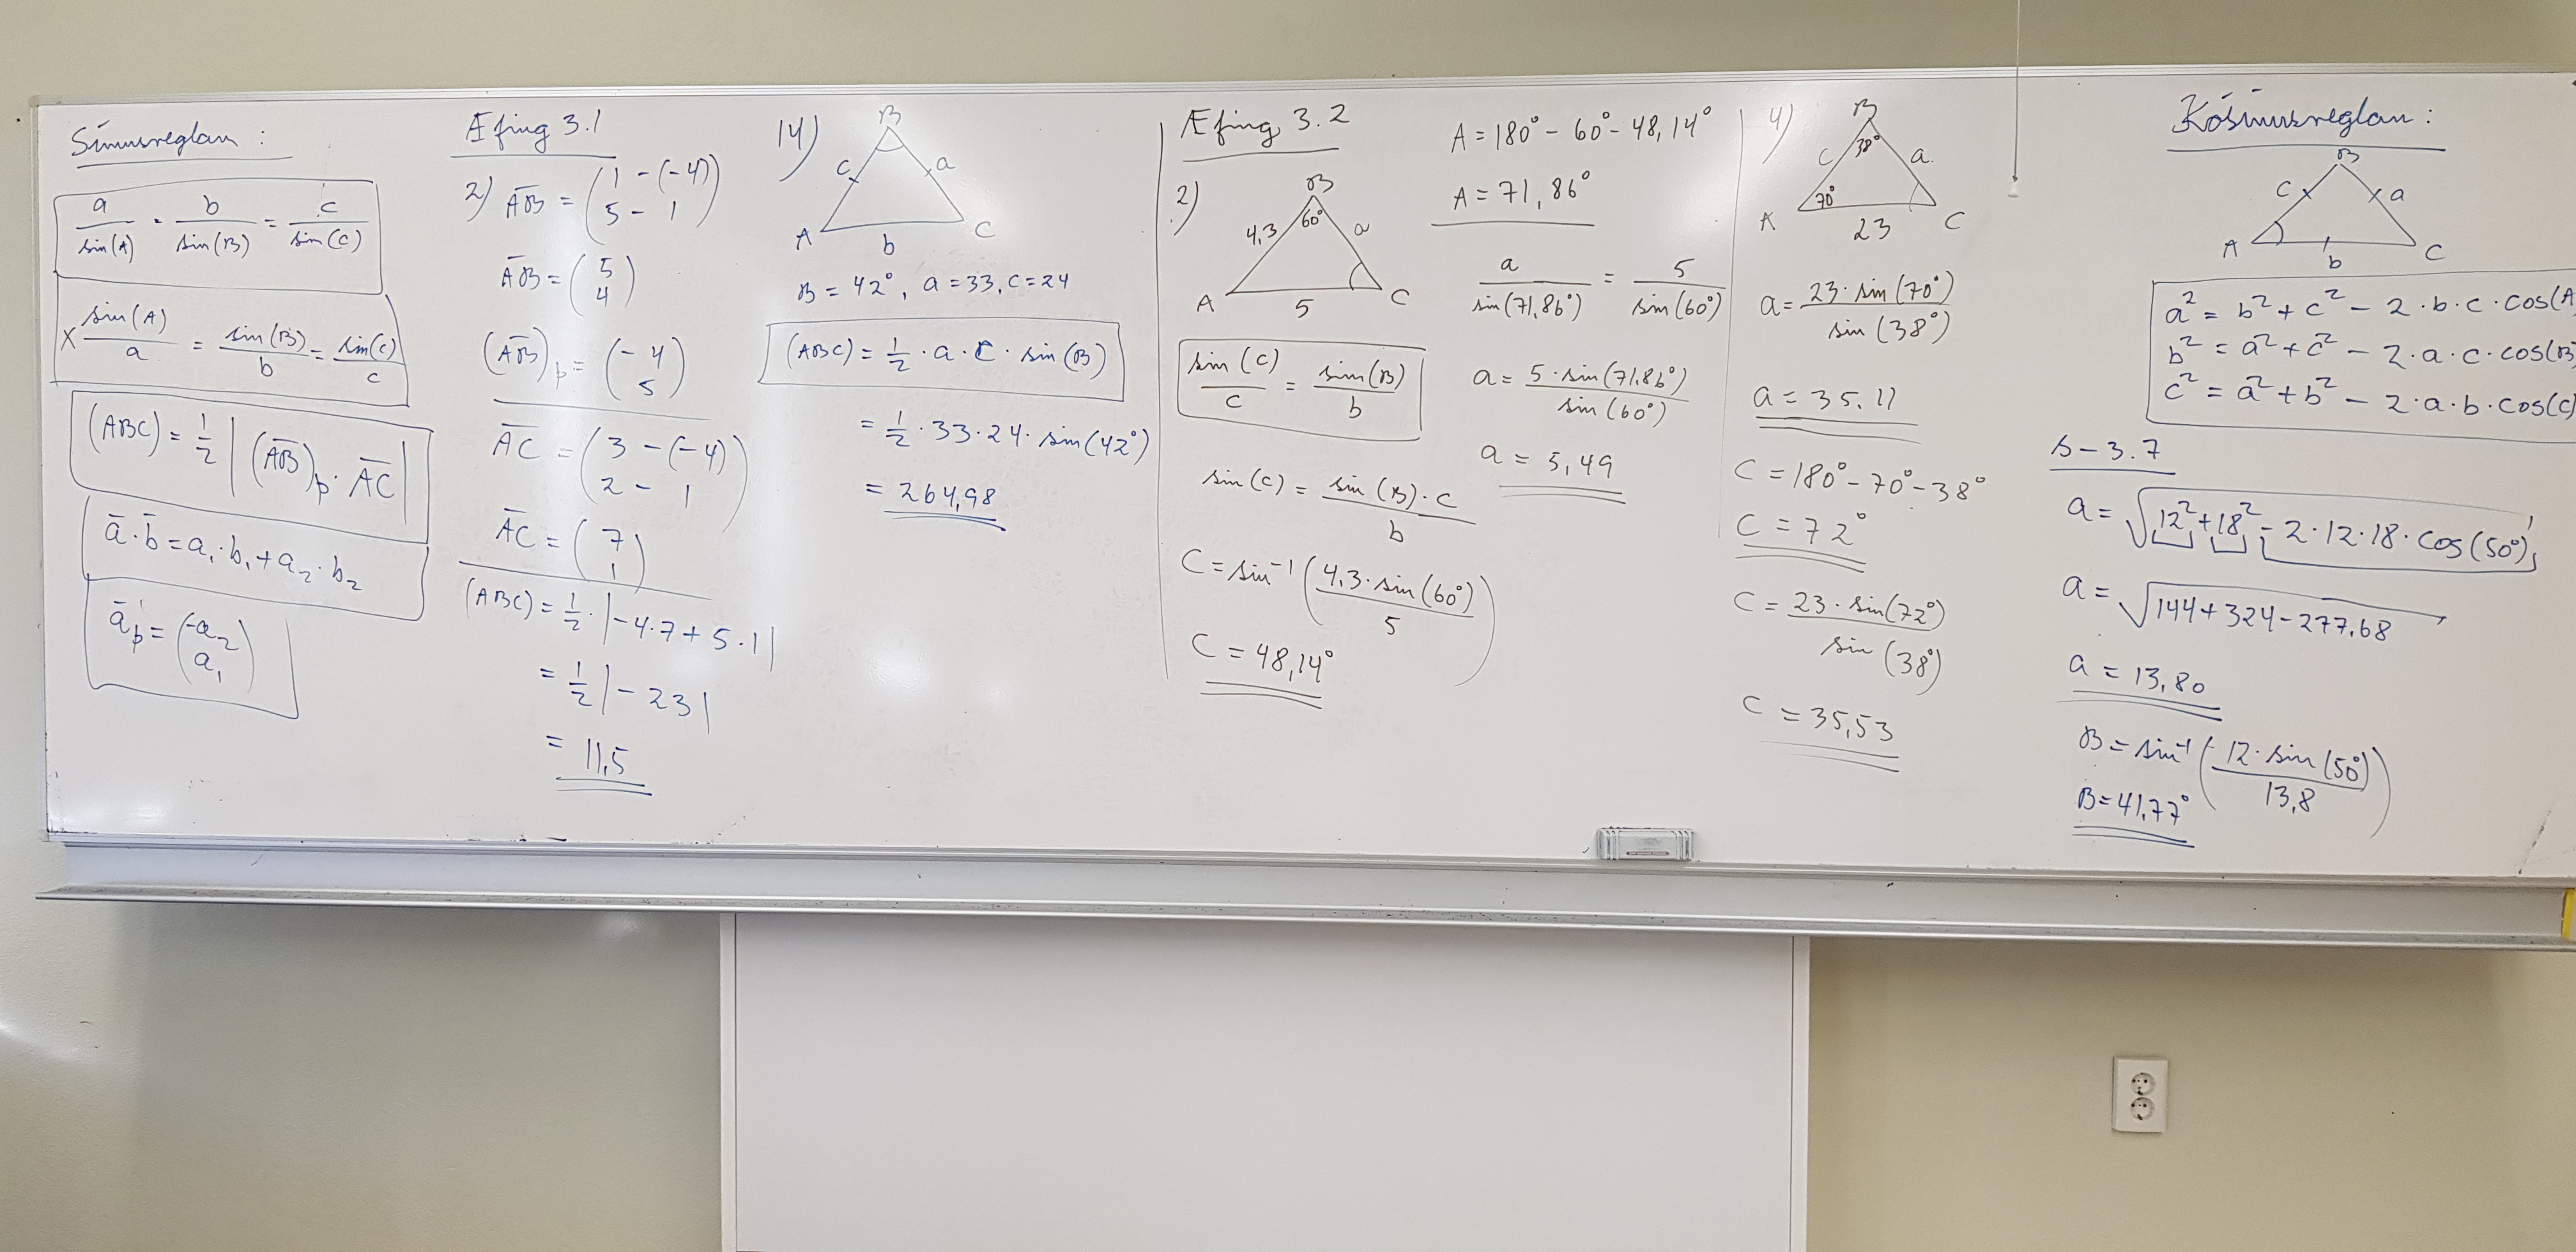 Sínusreglan :
a/sin(A) = b/sin(B) = c/sin(C)
x sin(A)/a = sin(B)/b = sin(C)/c
(ABC) = 1/2 |(AB)p · AC|
a · b = a1 · b1 + a2 · b2
ap = (-a2 a1)
Æfing 3.1
2) AB = (1 - (-4) 5 - 1)
AB = (5 4)
(AB)p = (-4 5)
AC = (3 - (-4) 2 - 1)
AC = (7 1)
(ABC) = 1/2 · |-4·7 + 5·1|
= 1/2 |-23|
= 11,5
14)
B
c a
A b C
B = 42°, a = 33, c = 24
(ABC) = 1/2 · a · c · sin(B)
= 1/2 · 33 · 24 · sin(42°)
= 264,98
Æfing 3.2
2)
B
4,3 60° a
A 5 C
sin(C)/c = sin(B)/b
sin(C) = sin(B) · c/b
C = sin⁻¹(4,3 · sin(60°)/5)
C = 48,14°
A = 180° - 60° - 48,14°
A = 71,86°
a/sin(71,86°) = 5/sin(60°)
a = 5 · sin(71,86°)/sin(60°)
a = 5,49
4)
B
c 38° a
A 70° 23 C
a = 23 · sin(70°)/sin(38°)
a = 35,11
C = 180° - 70° - 38°
C = 72°
C = 23 · sin(72°)/sin(38°)
C = 35,53
Kósínusreglan :
B
c a
A b C
a² = b² + c² - 2 · b · c · cos(A
b² = a² + c² - 2 · a · c · cos(B)
c² = a² + b² - 2 · a · b · cos(C)
S-3.7
a = √12² + 18² - 2 · 12 · 18 · cos(50°)
a = √144 + 324 - 277,68
a = 13,80
B = sin⁻¹(12 · sin(50°)/13,8)
B = 41,77°